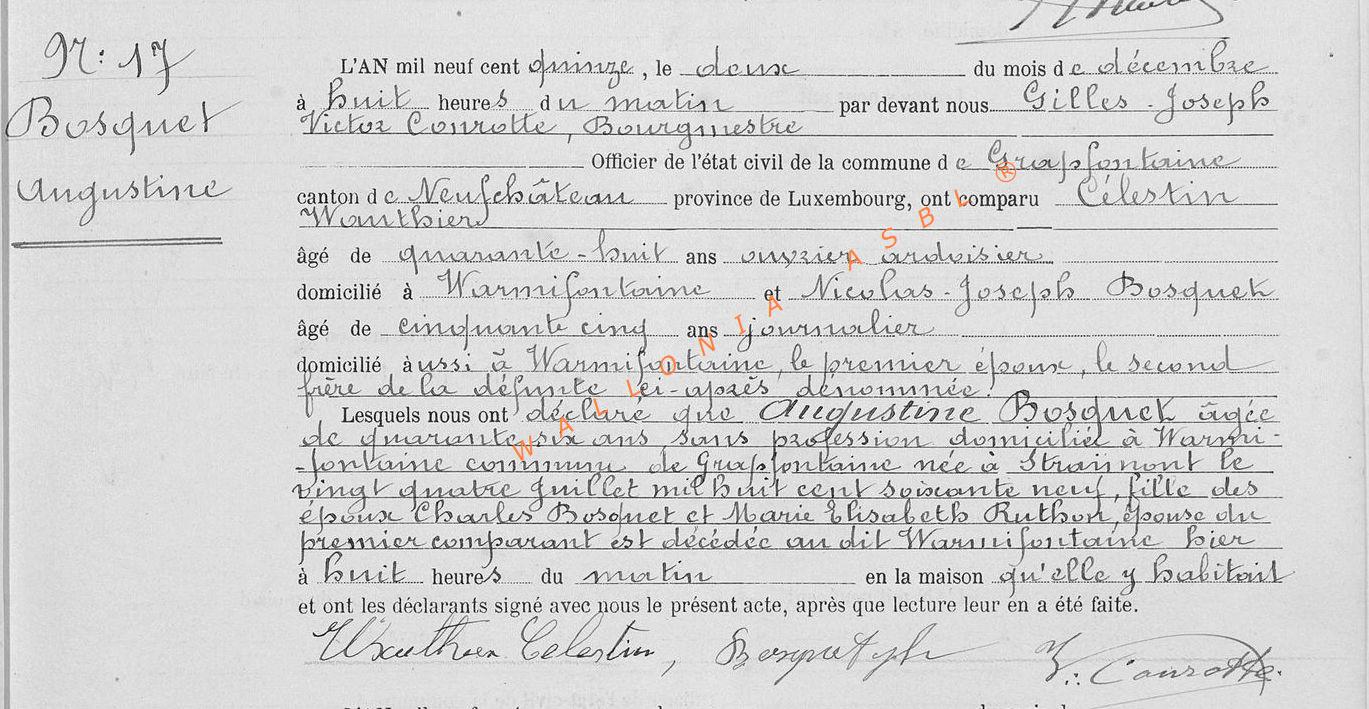 N: 17
Bosquet
Augustine
L'AN mil neuf cent quinze, le deux du mois de décembre
à huit heures du matin par devant nous Gilles-Joseph
Victor Conrotte, Bourgmestre
Officier de l'état civil de la commune de Grapfontaine
canton de Neufchâteau province de Luxembourg, ont comparu Célestin
Wauthier
âgé de quarante-huit ans ouvrier ardoisier
domicilié à Warmifontaine et Nicolas-Joseph Bosquet
âgé de cinquante cinq ans journalier
domicilié aussi à Warmifontaine, le premier époux, le second
frère de la défunte ci-après dénommée.
Lesquels nous ont déclaré que Augustine Bosquet âgée
de quarante six ans sans profession domiciliée à Warmi-
-fontaine commune de Grapfontaine née à Straimont le
vingt quatre Juillet mil huit cent soixante neuf, fille des
époux Charles Bosquet et Marie Elisabeth Ruthon, épouse du
premier comparant est décédée au dit Warmifontaine hier
à huit heures du matin en la maison qu'elle y habitait
et ont les déclarants signé avec nous le présent acte, après que lecture leur en a été faite.
Wauthier Celestin, Bosquet V. Conrotte.
WALLONIA ASBL ®